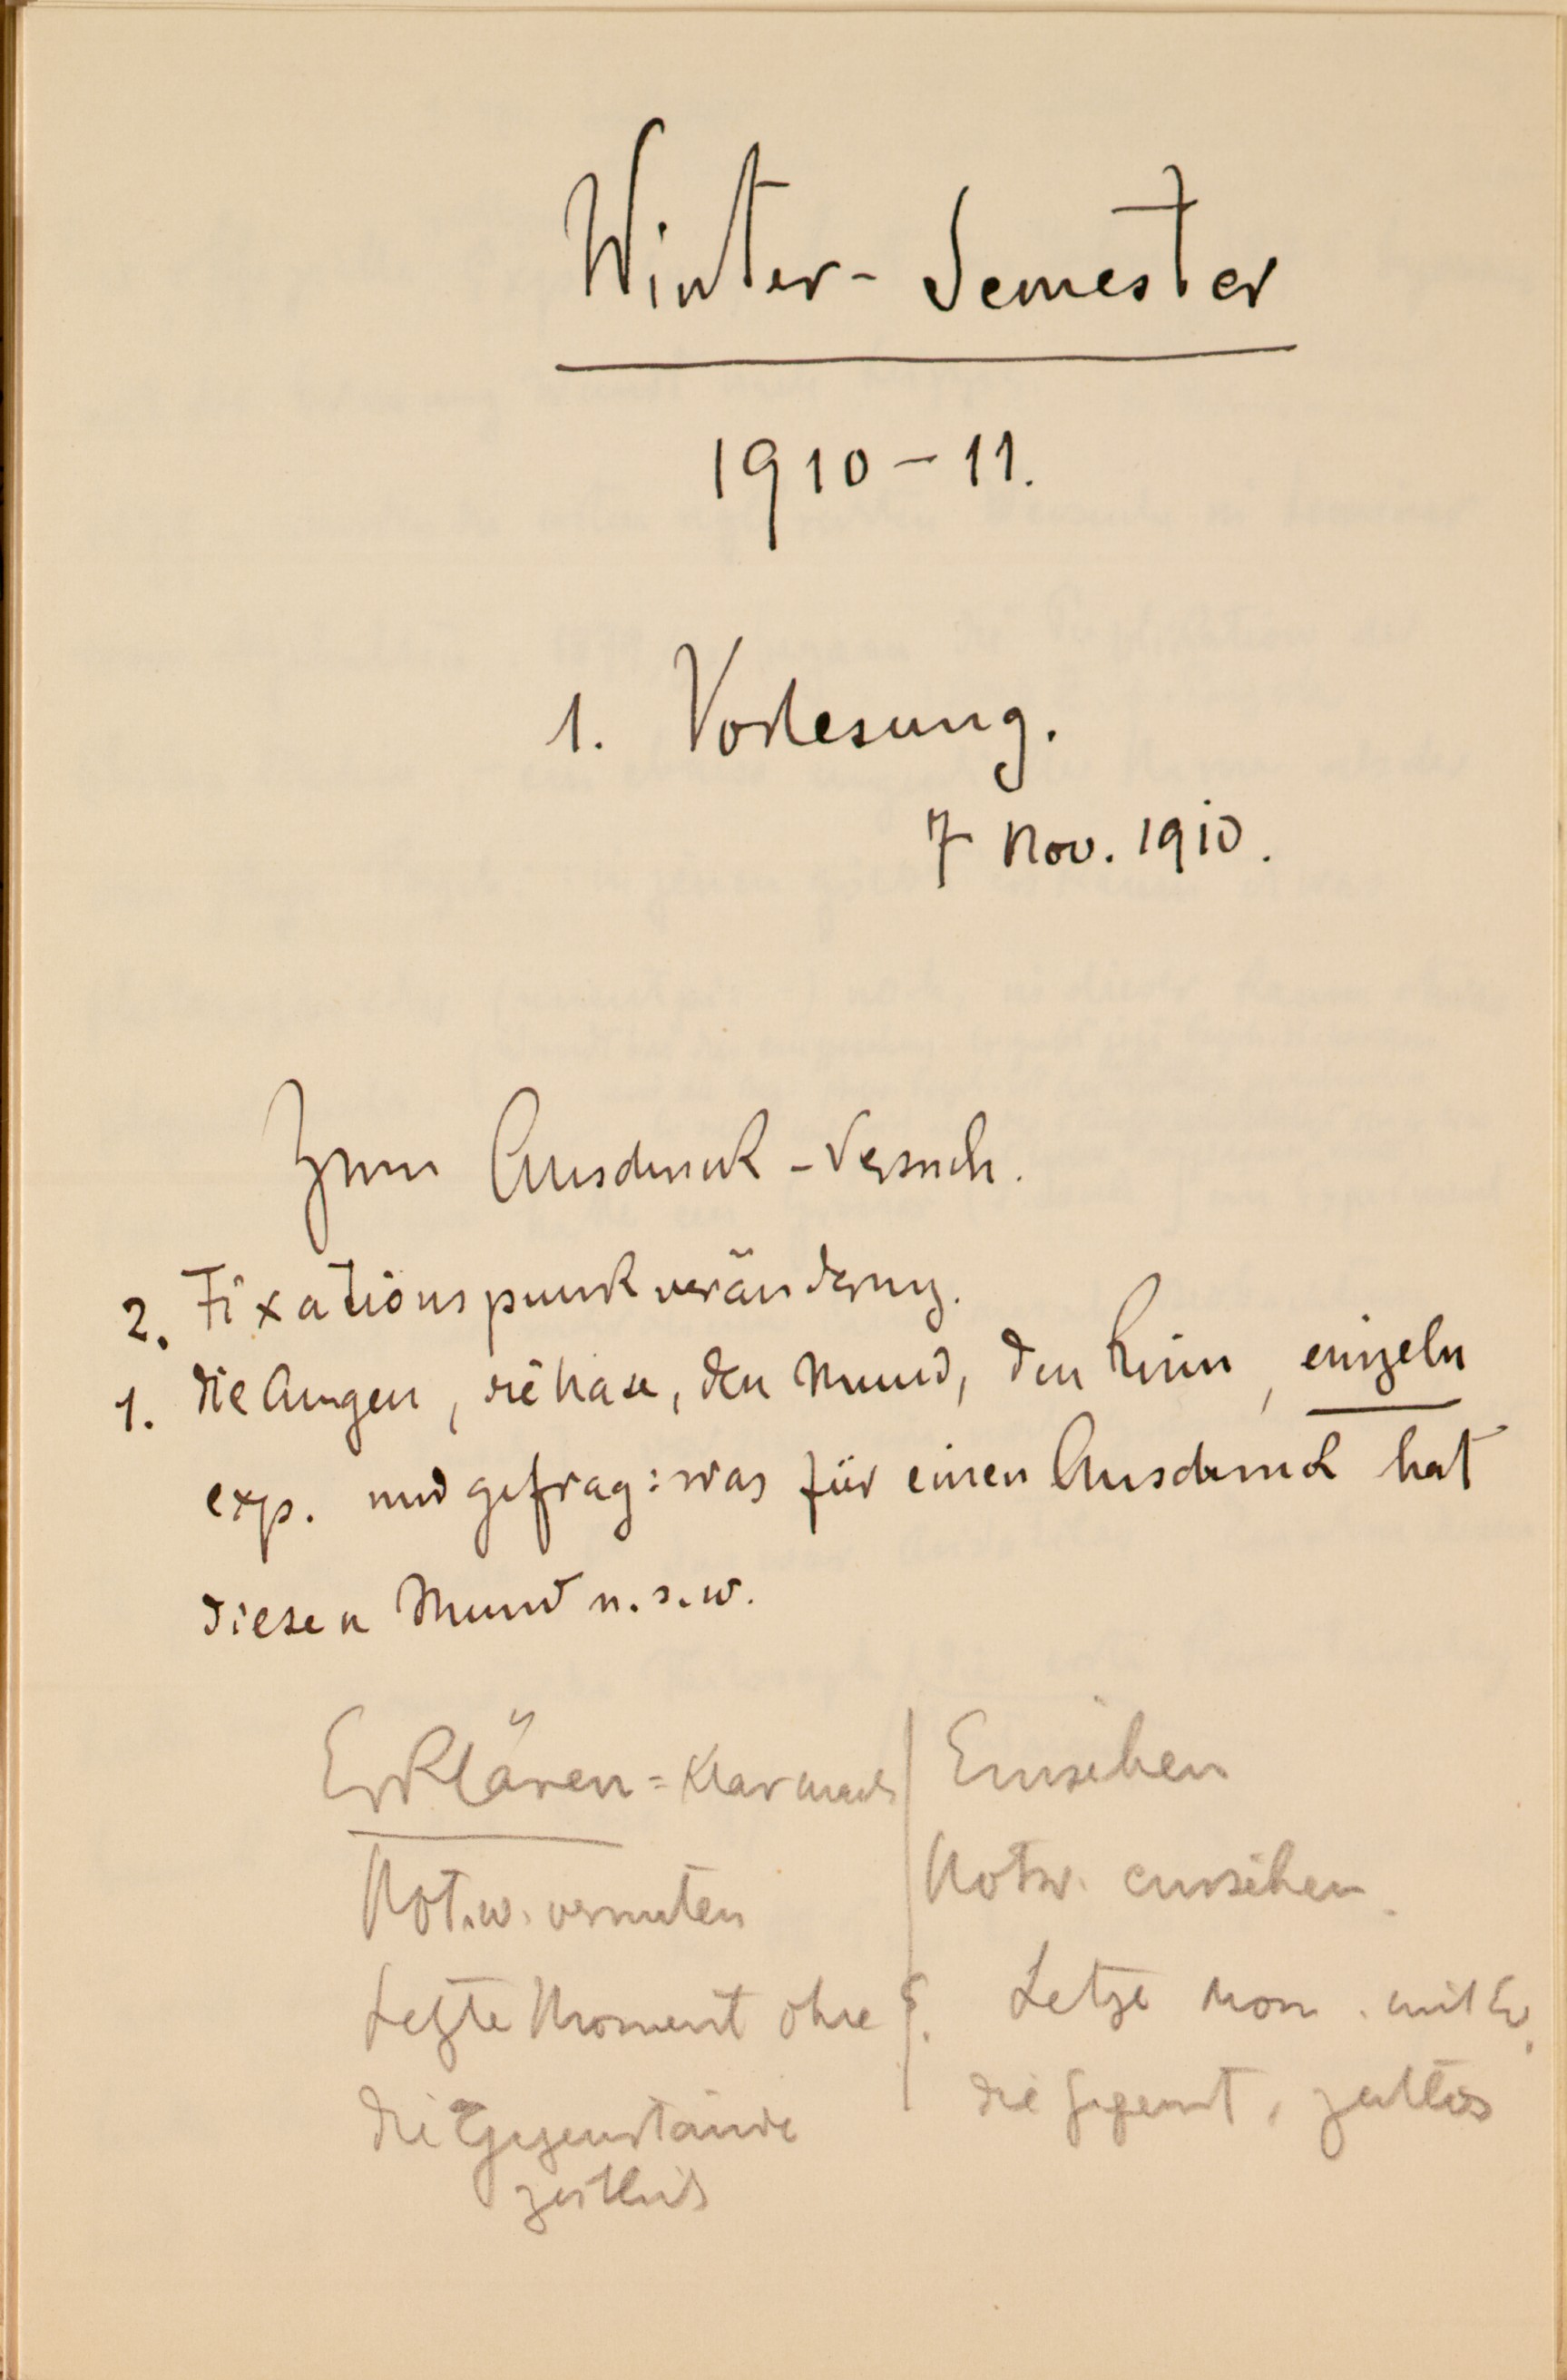 Winter-Semester
1910-11.
1. Vorlesung.
7 Nov. 1910.
Zum Ausdruck-Versuch.
2. Fixationspunkveränderung.
1. die Augen, die Nase, den Mund, den Kinn, einzeln
exp. und gefrag: was für einen Ausdruck hat
diesen Mund u.s.w.
Erklären = Klar mach | Einsehen
Not.w. vermuten | Notw. einsehen
Letzte Moment ohne E. | Letze Mom. mit E.
die Gegenstände | die Gegenst, zeitlos
zeitlich